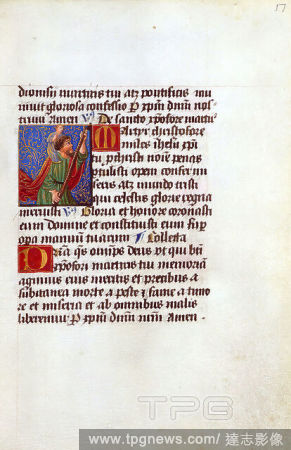 17
dionisi martiris tui atz pontificis mu
niuit gloriosa confessio P xpm dnm nos
trum Amen De sancto xpofore martir
Martyr christofore
miles ihesu xpi
tu p christi noie penas
ptulisti opem confer mi
seris atz mundo tristi
qui celestis glorie regna
meruisti Gloria et honore coronasti
eum domine et constituisti eum sup
opa manuum tuarum Collecta
Pra qs omips deus vt qui bti
xpofori martiris tui memoriam
agimus eius meritis et precibus a
subitanea morte a peste fame a timo
re et miseria et ab omnibus malis
liberemur P xpm dnm nrm Amen
TPG
www.tpgnews.com / 達志影像